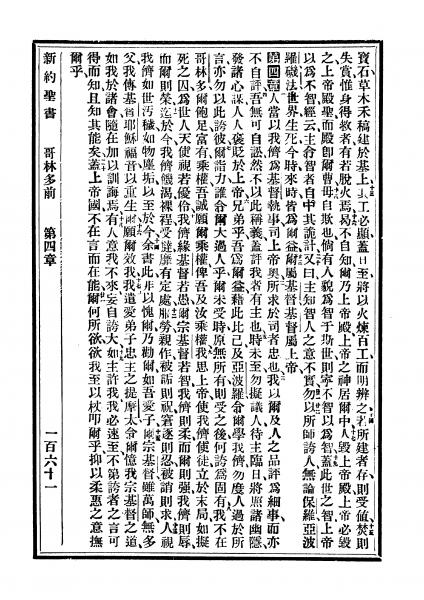 寶石草木禾稿建於基上工必顯蓋日至將以火煉百工而明辨之若所建者存則受値焚則
失賞惟身得救者有若脫火焉曷不自知爾乃上帝殿上帝之神居爾中人毀上帝殿上帝必毀
之上帝殿聖而殿卽爾曹毋自欺也倘有人貌爲智于斯世則寧不智以爲智蓋此世之智上帝
以爲不智經云主令智者自中其詭計又曰主知智人之意不實勿以所師誇人無論保羅亞波
羅磯法世界生死今時來時皆爲爾益爾屬基督基督屬上帝
第四章人當以我儕爲基督執事司上帝奧所求於司者忠也我以爾及人之品評爲細事而亦
不自評吾無可自訟然不以此稱義蓋評我者有主也時未至勿擬議人待主臨日將照諸幽隱
發諸心謀人人褒貶於上帝兄弟乎吾爲爾益藉此比己及亞波羅令爾學我儕勿度人過於所
言亦勿以此誇彼爾誰力誰令爾大過人乎爾未受時原無所有則受之後何誇爲固有我不在
哥林多爾飽足富有乘權吾誠願爾乘權俾吾及汝乘權我思上帝使我儕使徒立於末局如擬
死之囚爲世人天使視若優伶我儕緣基督若愚爾宗基督若智我儕則柔而爾則强我儕則辱
而爾則榮迄於今我儕饑渴裸裎受撻靡有定處服勞親作被詬則祝窘逐則忍被誚則求人視
我儕如世汚穢如物塵垢以至於今余書此非以愧爾乃勸爾如吾愛子爾宗基督雖萬師無多
父我傳基督耶穌福音以重生爾願爾效我我遣愛弟子忠主之提摩太令爾憶我宗基督之道
如我於諸會隨在加以訓誨焉有人意我不來妄自誇大如主許我我必速至不第誇者之言可
得而知且知其能矣蓋上帝國不在言而在能爾何所欲欲我至以杖叩爾乎抑以柔惠之意撫
爾乎
新約聖書 哥林多前 第四章 一百六十一